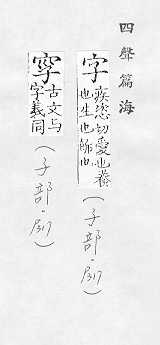 四聲篇海
字疾恣切愛也養
也生也飾也
(子部·尾)
㝒古文与
字義同
(子部·尾)